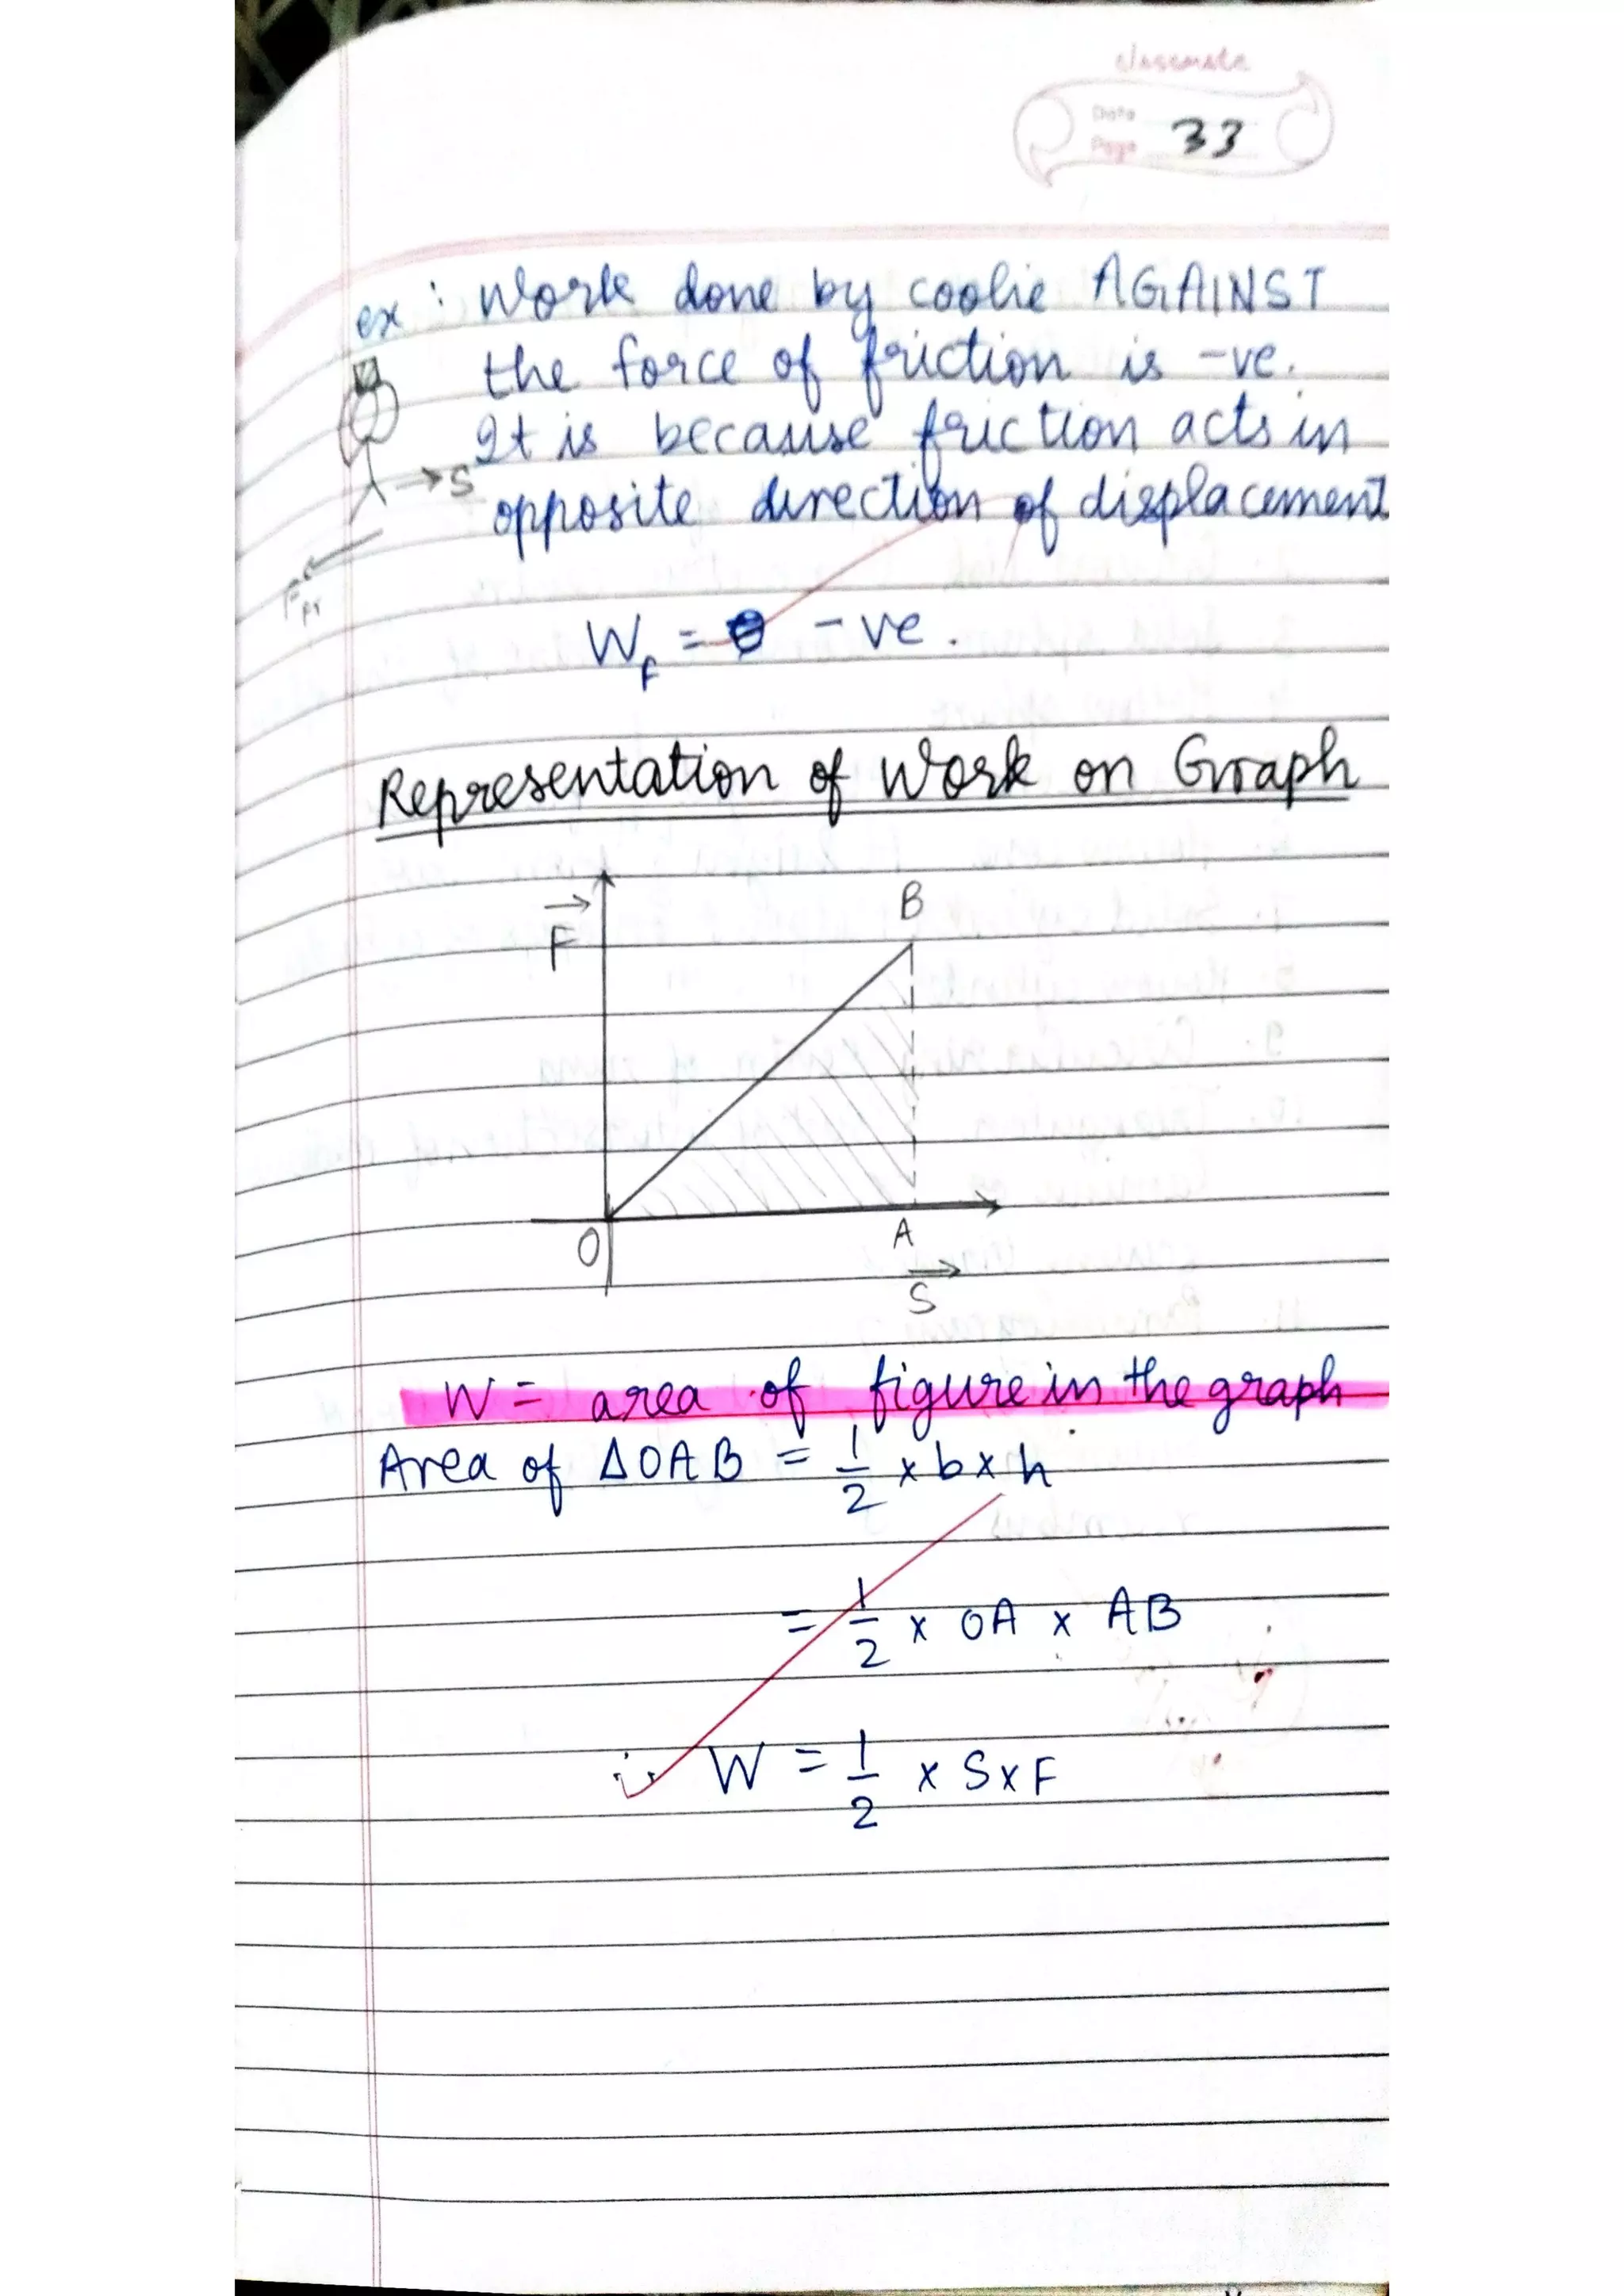 classmate
Date
Page 33
ex : Work done by coolie AGAINST
the force of friction is -ve.
It is because friction acts in
→S
opposite direction of displacement
Ffr
WF = -ve.
Representation of Work on Graph
F
B
O
A
S
W = area of figure in the graph
Area of ΔOAB = 1/2 x b x h
= 1/2 x OA x AB
∴ W = 1/2 x S x F